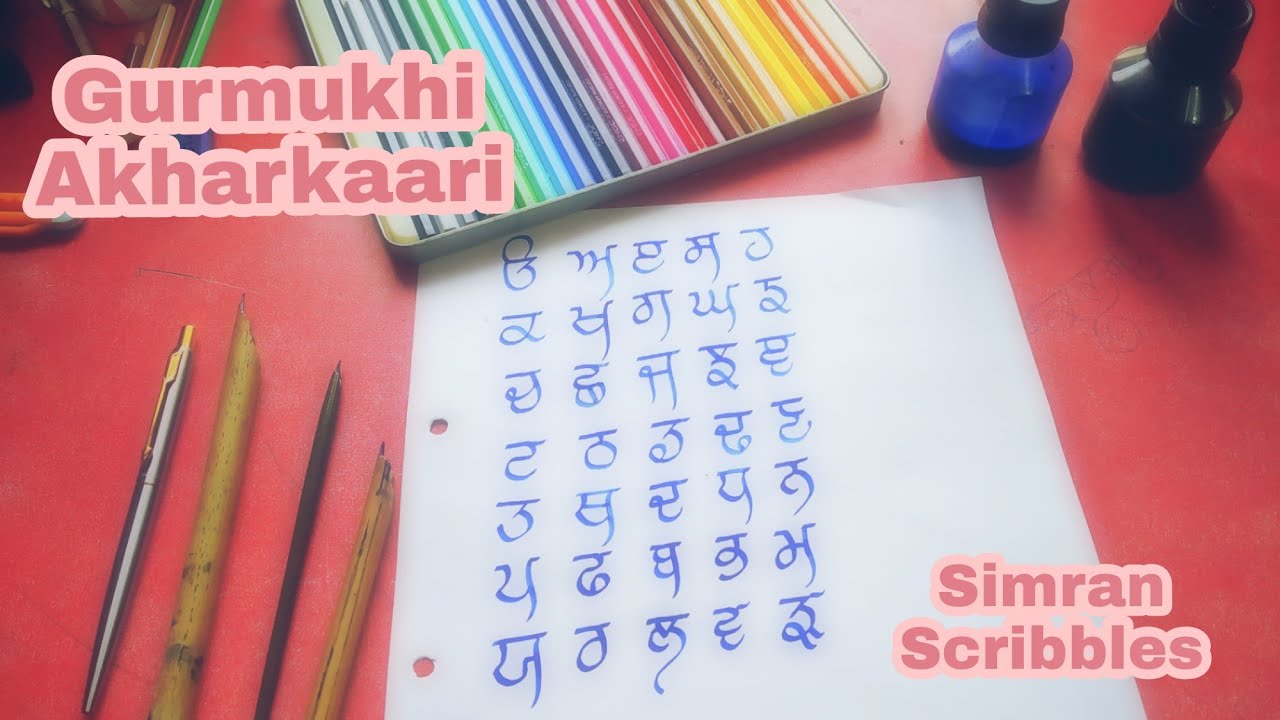 Gurmukhi
Akharkaari
ੳ ਅ ੲ ਸ ਹ
ਕ ਖ ਗ ਘ ਙ
ਚ ਛ ਜ ਝ ਞ
ਟ ਠ ਡ ਢ ਣ
ਤ ਥ ਦ ਧ ਨ
ਪ ਫ ਬ ਭ ਮ
ਯ ਰ ਲ ਵ ੜ
Simran
Scribbles